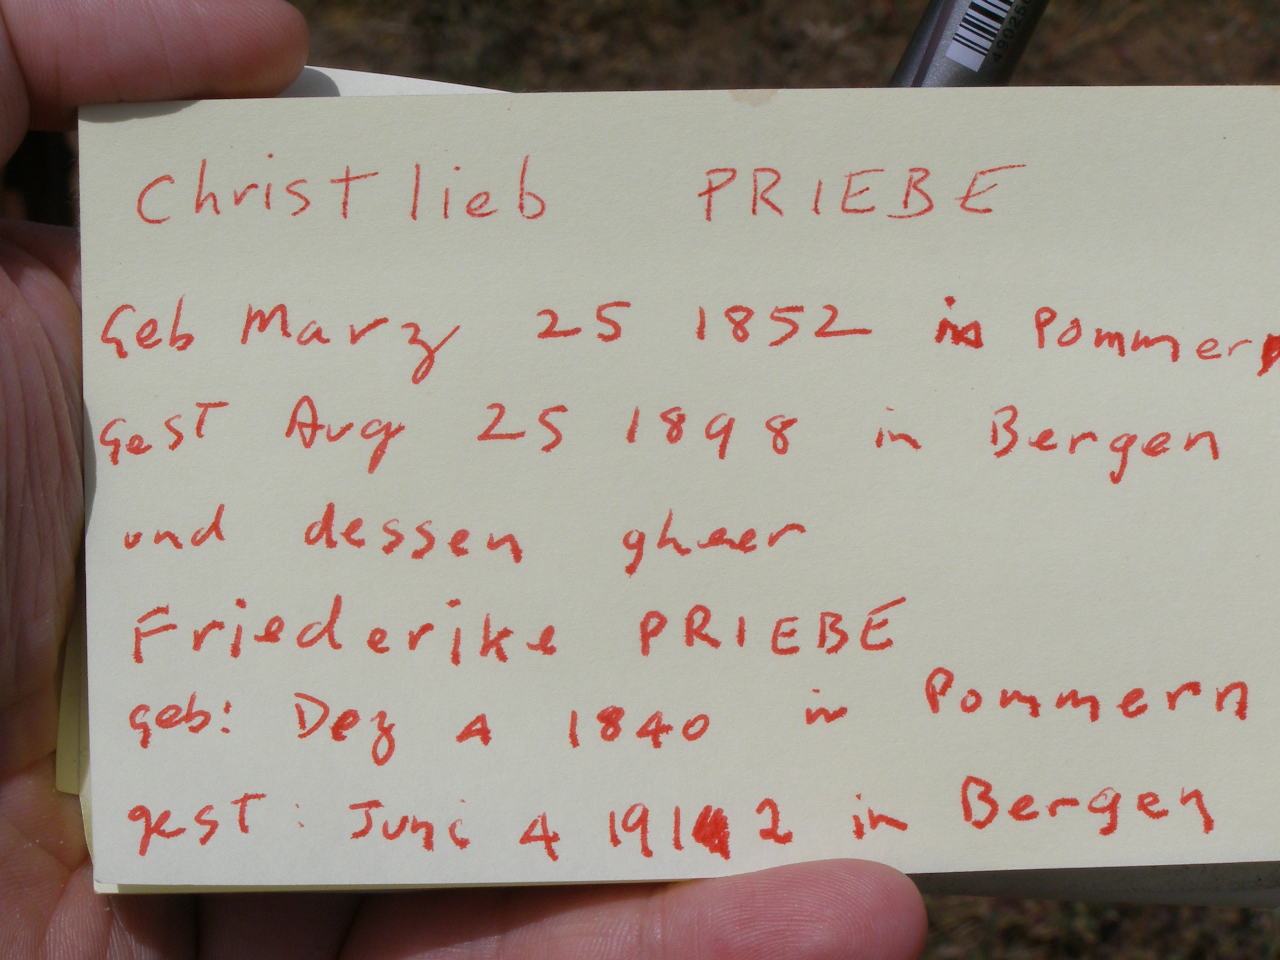 Christlieb PRIEBE
Geb Marz 25 1852 in Pommern
gest Aug 25 1898 in Bergen
und dessen gheer
Friederike PRIEBE
geb: Dez 4 1840 in Pommern
gest: Juni 4 1912 in Bergen